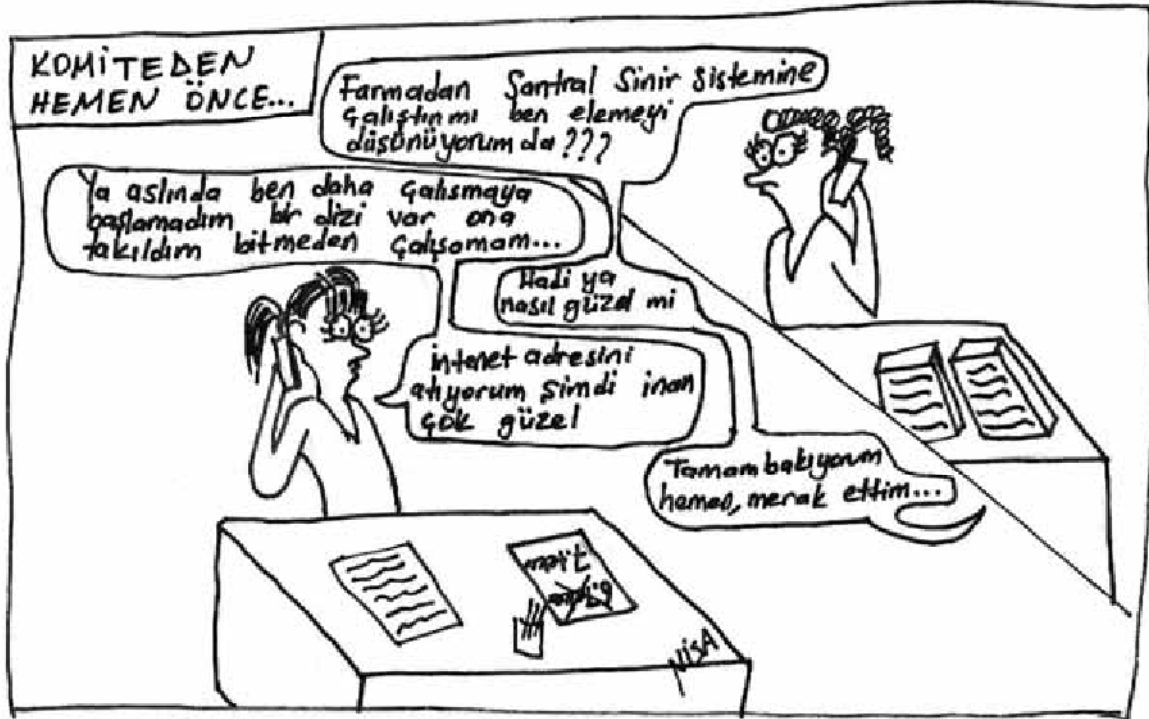 KOMİTEDEN
HEMEN ÖNCE...
Farmadan Santral Sinir Sistemine
çalıştınmı ben elemeyi
düşünüyorum da???
Ya aslında ben daha çalışmaya
başlamadım bir dizi var ona
takıldım bitmeden çalışamam...
Hadi ya
nasıl güzel mi
İntenet adresini
atıyorum şimdi inan
çok güzel
Tamam bakıyorum
hemen, merak ettim...
NİSA